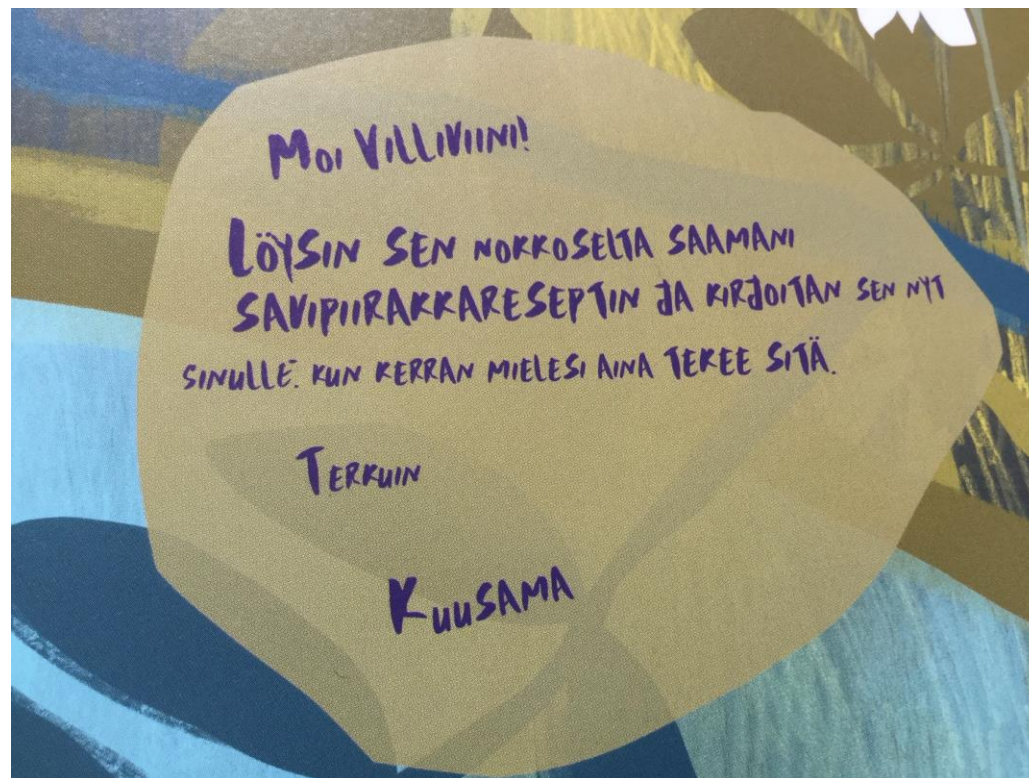 Moi Villiviini!
Löysin sen nokkoselta saamani
savipiirakkareseptin ja kirjoitan sen nyt
sinulle. kun kerran mielesi aina tekee sitä.
Terkuin
Kuusama